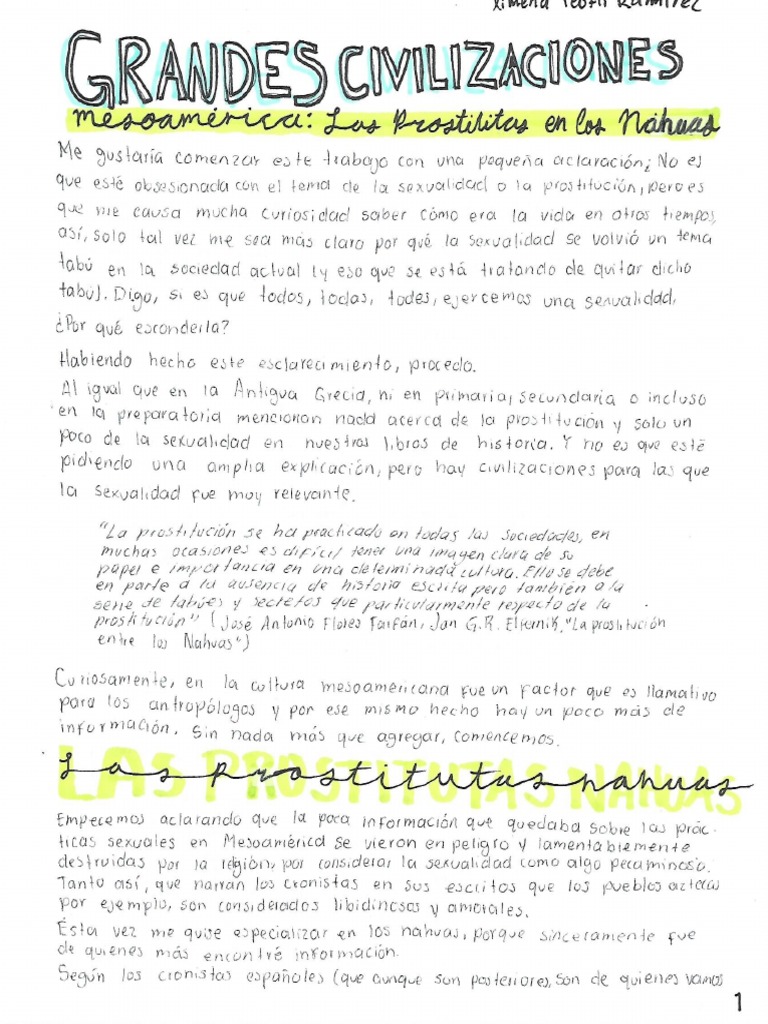 Ximena Teofil Ramírez
GRANDES CIVILIZACIONES
Mesoamérica: Las Prostilitas en los Nahuas
Me gustaría comenzar este trabajo con una pequeña aclaración; No es
que esté obsesionada con el tema de la sexualidad o la prostitución, pero es
que me causa mucha curiosidad saber cómo era la vida en otros tiempos,
así, solo tal vez me sea más claro por qué la sexualidad se volvió un tema
tabú en la sociedad actual (y eso que se está tratando de quitar dicho
tabú). Digo, si es que todos, todas, todes, ejercemos una sexualidad,
¿Por qué esconderla?
Habiendo hecho este esclarecimiento, procedo.
Al igual que en la Antigua Grecia, ni en primaria, secundaria o incluso
en la preparatoria mencionan nada acerca de la prostitución y solo un
poco de la sexualidad en nuestros libros de historia. Y no es que esté
pidiendo una amplia explicación, pero hay civilizaciones para las que
la sexualidad fue muy relevante.
"La prostitución se ha practicado en todas las sociedades, en
muchas ocasiones es difícil tener una imagen clara de su
papel e importancia en una determinada cultura. Ello se debe
en parte a la ausencia de historia escrita pero también a la
serie de tabúes y secretos que particularmente respecto de la
prostitución" (José Antonio Flores Farfán, Jan G.R. Elferink, "La prostitución
entre los Nahuas")
Curiosamente, en la cultura mesoamericana fue un factor que es llamativo
para los antropólogos y por ese mismo hecho hay un poco más de
información. Sin nada más que agregar, comencemos.
LAS PROSTITUTAS NAHUAS
Las prostitutas nahuas
Empecemos aclarando que la poca información que quedaba sobre las prác-
ticas sexuales en Mesoamérica se vieron en peligro y lamentablemente
destruidas por la religión, por considerar la sexualidad como algo pecaminoso.
Tanto así, que narran los cronistas en sus escritos que los pueblos aztecas
por ejemplo, son considerados libidinosos y amorales.
Ésta vez me quise especializar en los nahuas, porque sinceramente fue
de quiénes más encontré información.
Según los cronistas españoles (que aunque son posteriores, son de quienes vamos
1